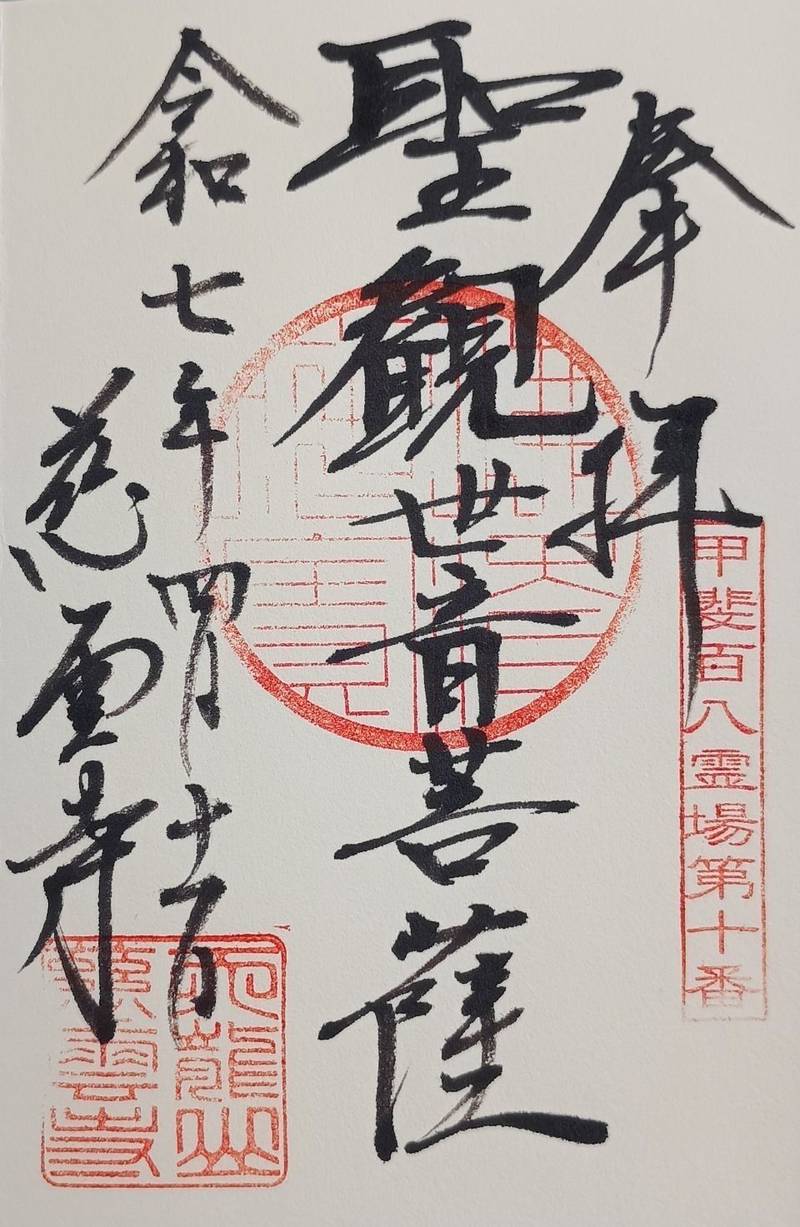 奉拝
甲斐百八霊場第十番
聖観世音菩薩
令和七年四月十日
慈雲寺
龍山
慈雲寺